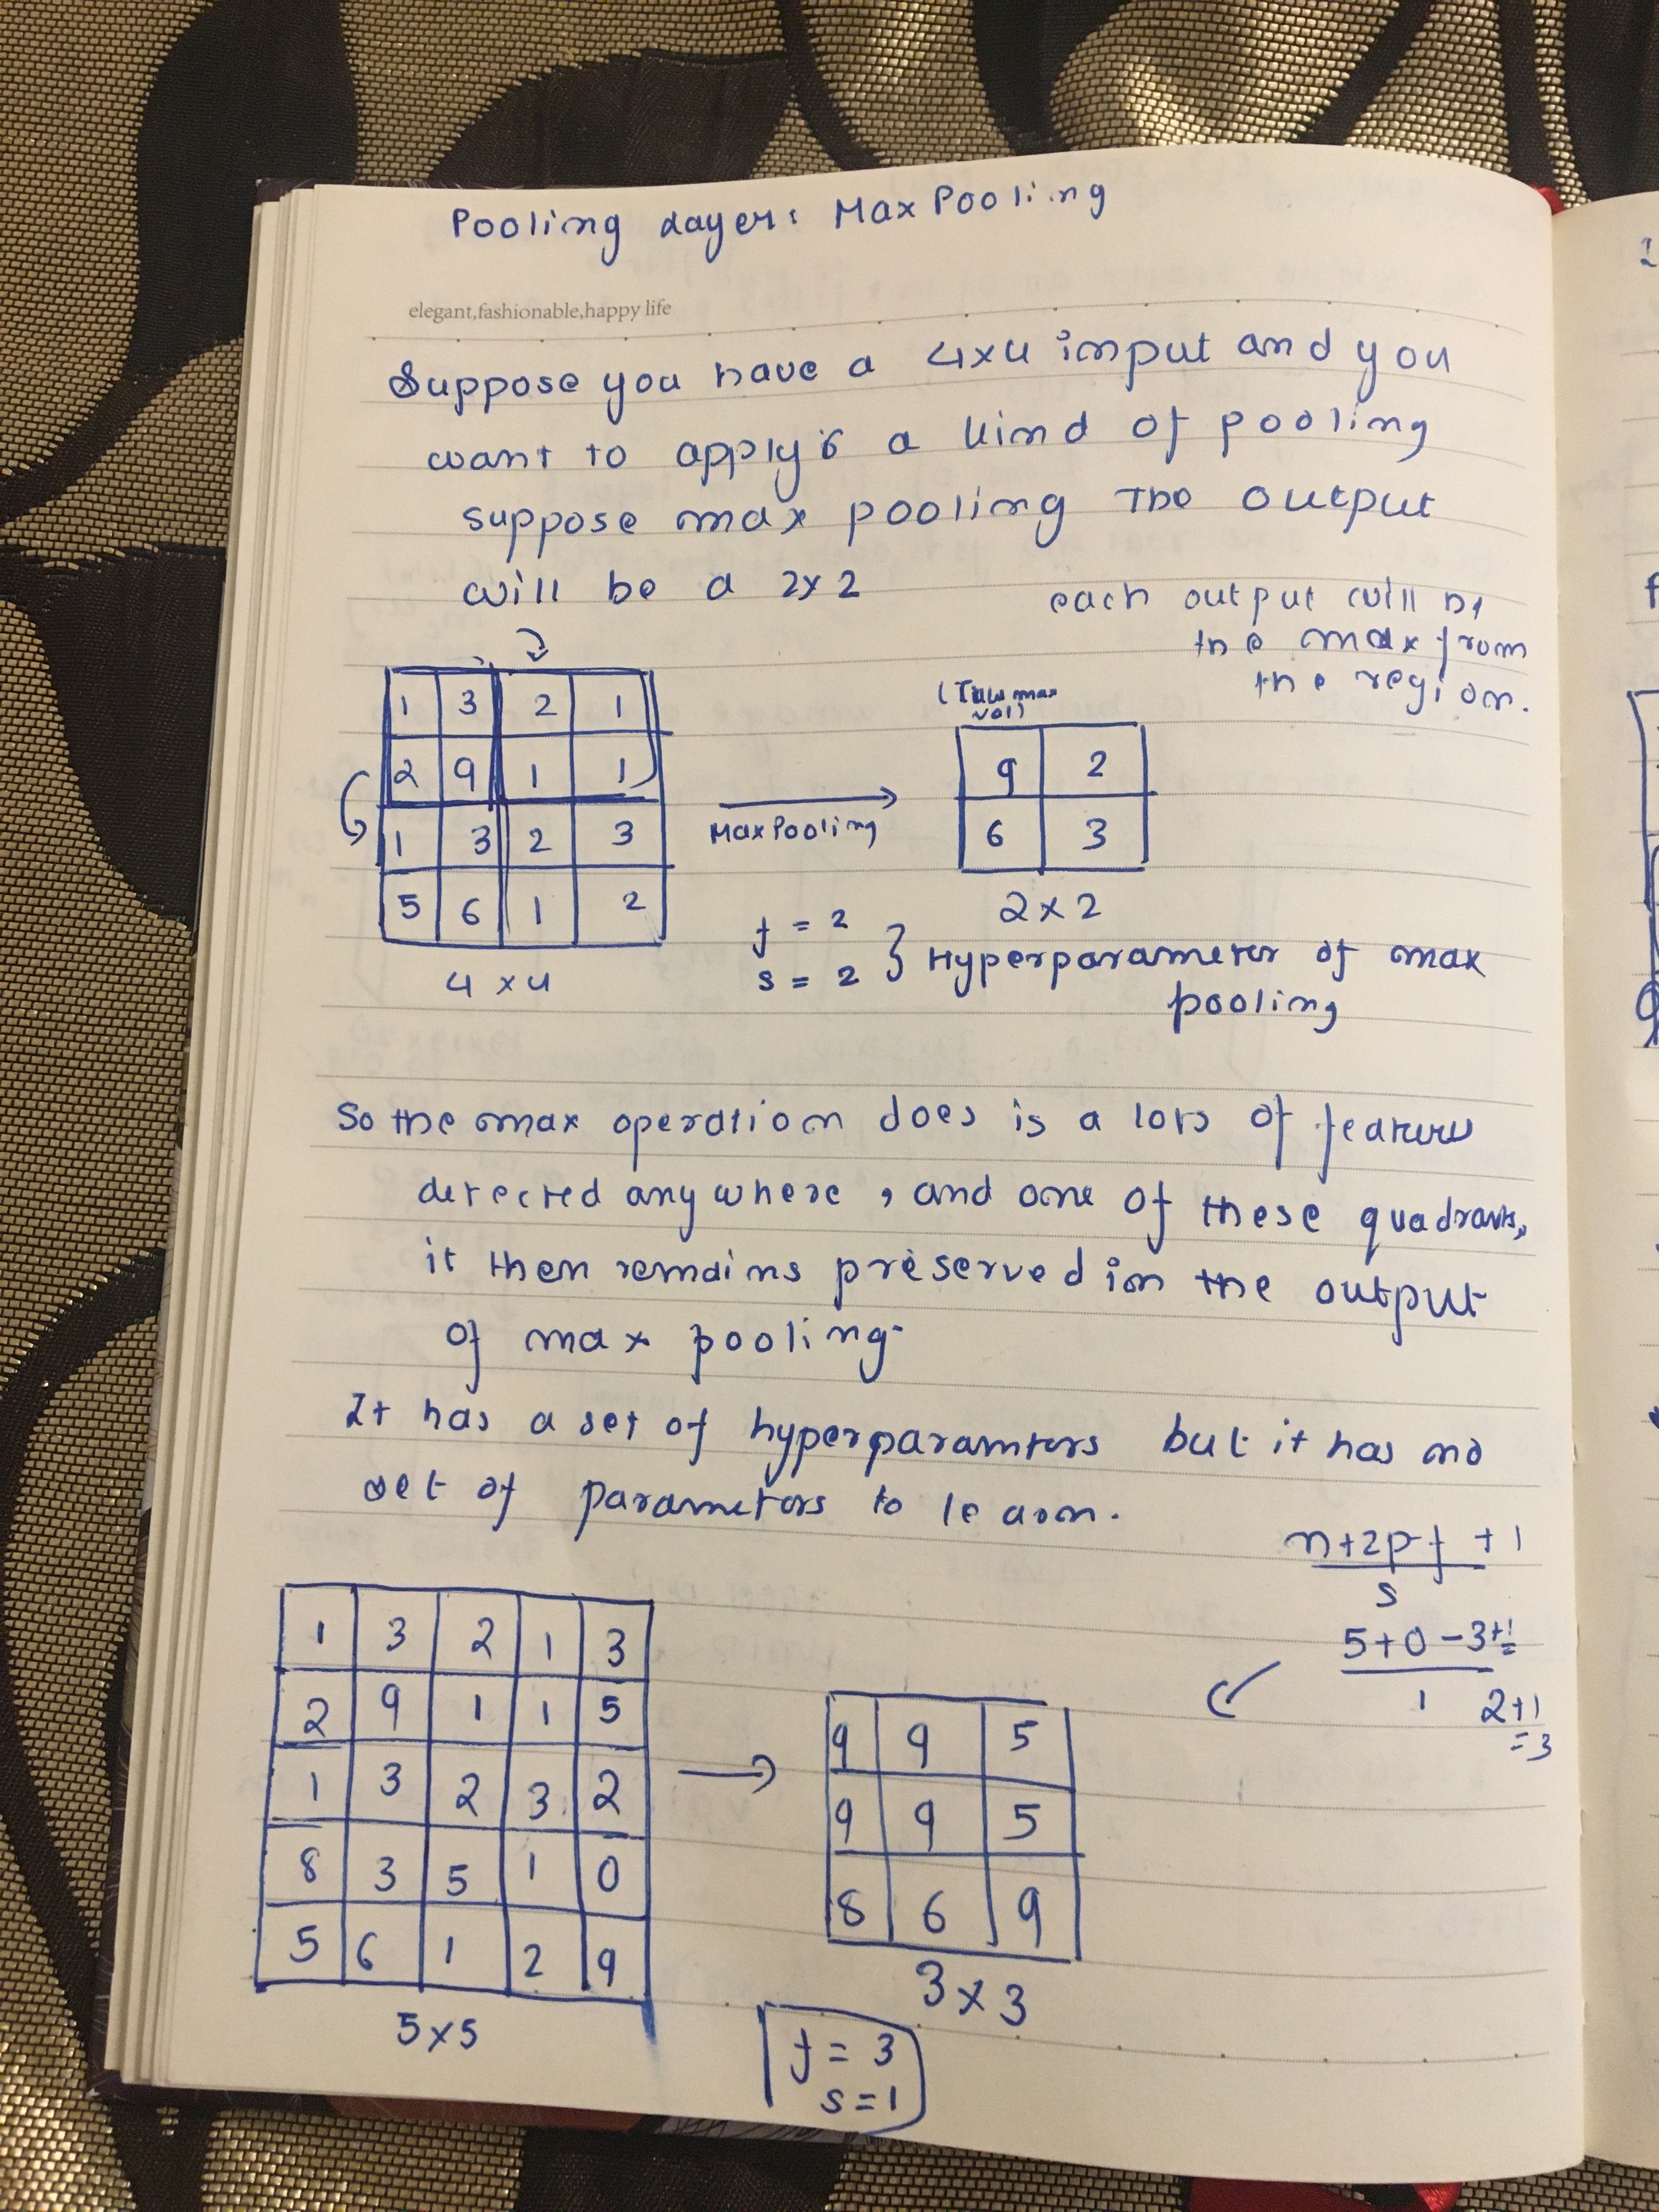 Pooling Layer: Max Pooling
elegant,fashionable,happy life
Suppose you have a 4x4 input and you
want to apply a kind of pooling
suppose max pooling The output
will be a 2x2
each output will be
the max from
the region.
1 3 2 1
2 9 1 1
1 3 2 3
5 6 1 2
4 x 4
Max Pooling
(Take max
val)
9 2
6 3
2 x 2
f = 2
s = 2
} Hyperparameter of max
pooling
So the max operation does is a lots of features
detected anywhere, and one of these quadrants,
it then remains preserved in the output
of max pooling.
It has a set of hyperparamters but it has no
set of parameters to learn.
n+2p-f + 1
s
5+0-3+1
1
2+1
=3
1 3 2 1 3
2 9 1 1 5
1 3 2 3 2
8 3 5 1 0
5 6 1 2 9
5x5
9 9 5
9 9 5
8 6 9
3 x 3
f = 3
s = 1